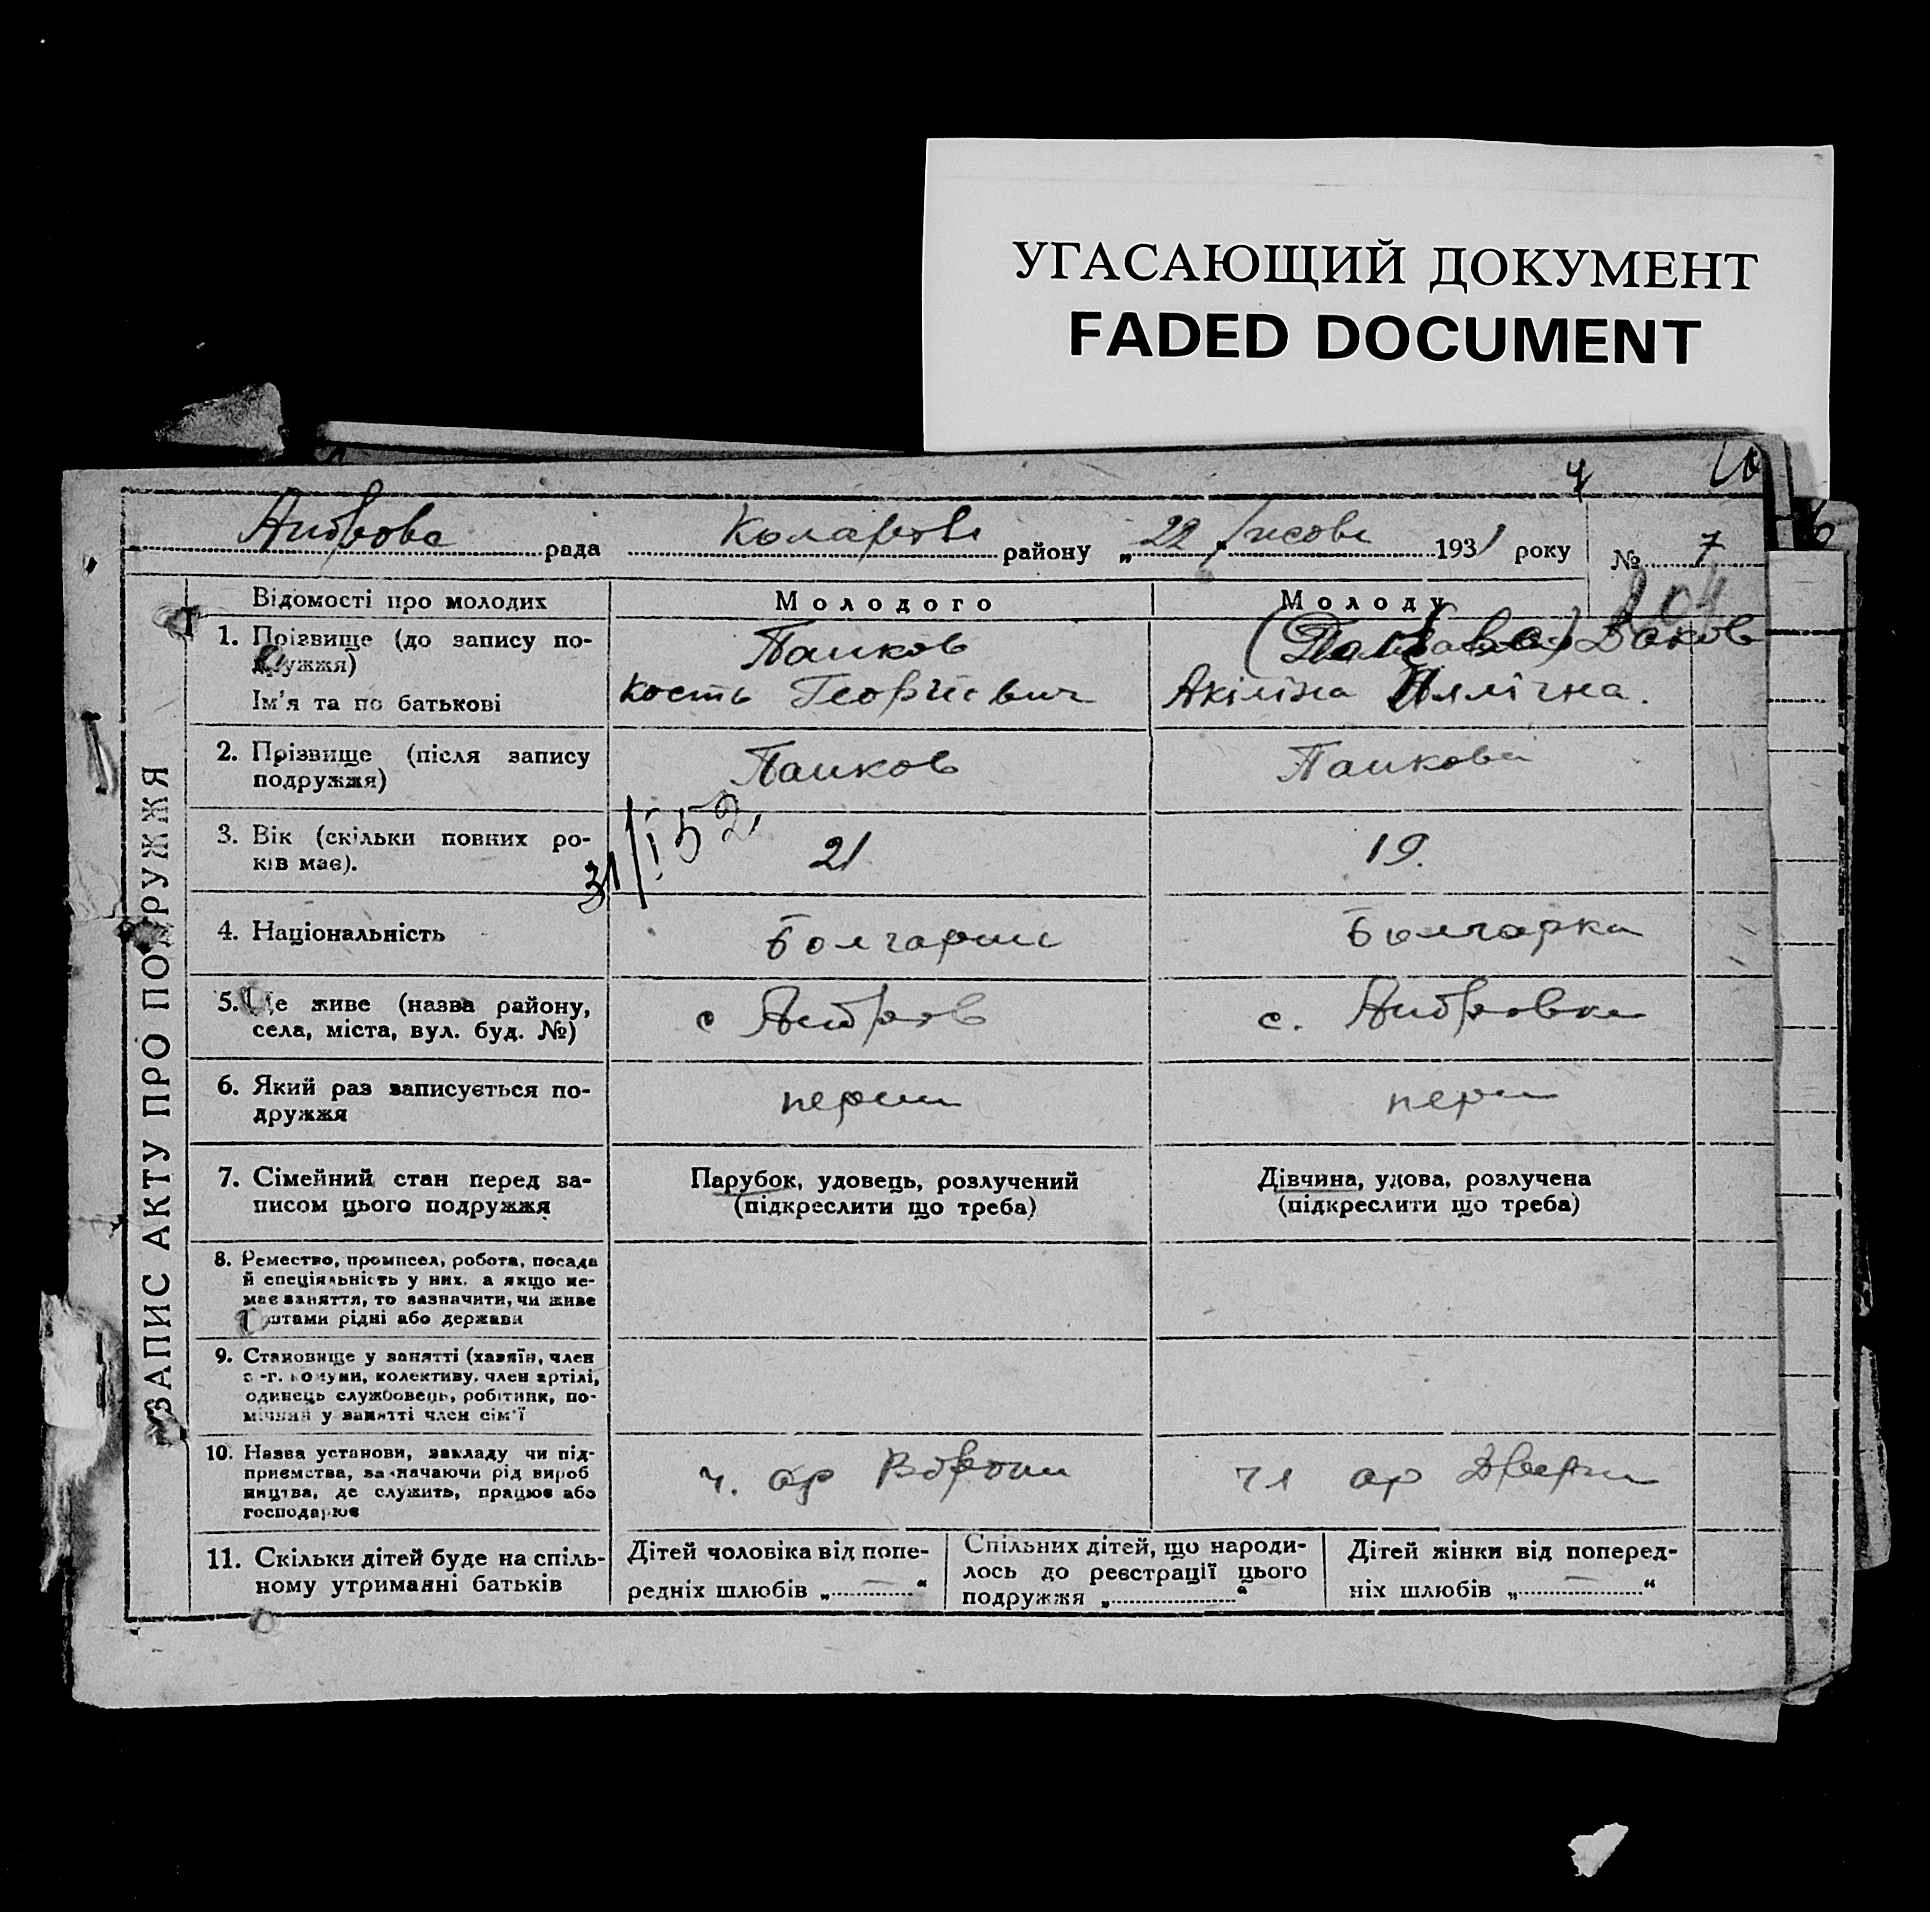 УГАСАЮЩИЙ ДОКУМЕНТ
FADED DOCUMENT
рада району „22“ 1931 року № 7
204
ЗАПИС АКТУ ПРО ПОДРУЖЖЯ
Відомості про молодих
Молодого
Молоду
1. Прізвище (до запису по-
дружжя)
Ім'я та по батькові
Панков
Кость Георгієвич
Акіліна
2. Прізвище (після запису
подружжя)
Панков
Панкова
3. Вік (скільки повних ро-
ків має).
31/I 52
21
19.
4. Національність
Болгарка
5. Де живе (назва району,
села, міста, вул. буд. №)
с
с.
6. Який раз записується по-
дружжя
7. Сімейний стан перед за-
писом цього подружжя
Парубок, удовець, розлучений
(підкреслити що треба)
Дівчина, удова, розлучена
(підкреслити що треба)
8. Ремество, промисел, робота, посада
й спеціяльність у них, а якщо не-
має заняття, то зазначити, чи живе
коштами рідні або держави
9. Становище у занятті (хазяїн, член
с.-г. комуни, колективу, член артілі,
одинець службовець, робітник, по-
мічний у занятті член сім'ї
10. Назва установи, закладу чи під-
приємства, зазначаючи рід вироб
ництва, де служить, працює або
господарює
ч. ар
чл ар
11. Скільки дітей буде на спіль-
ному утриманні батьків
Дітей чоловіка від попе-
редніх шлюбів „—“
Спільних дітей, що народи-
лось до реєстрації цього
подружжя „ “
Дітей жінки від поперед-
ніх шлюбів „—“